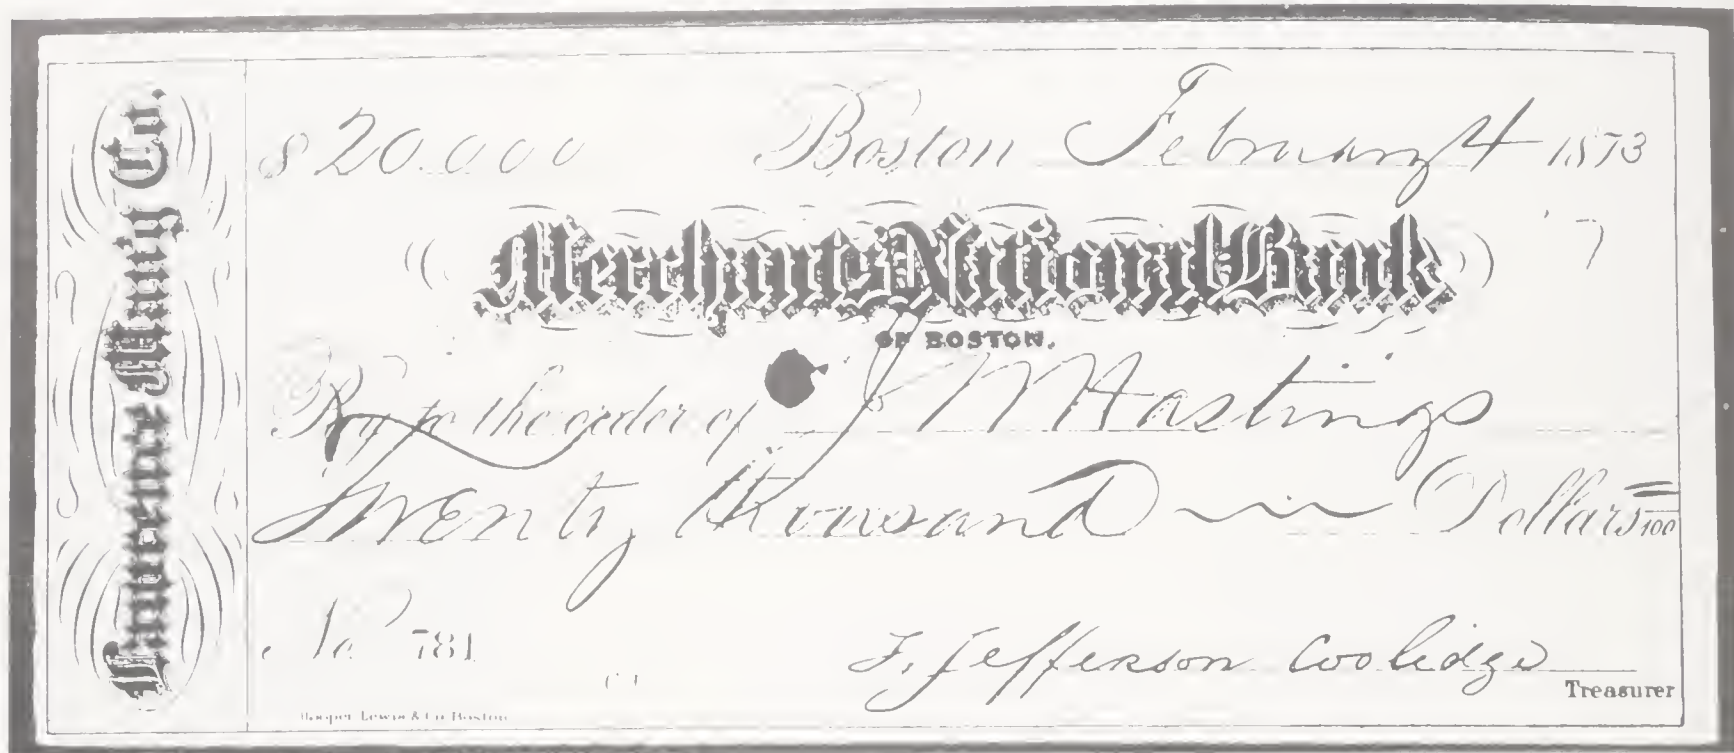 Lawrence M'fg Co.
$ 20.000 Boston February 4 1873
Merchants National Bank
OF BOSTON.
Pay to the order of J M Hastings
Twenty Thousand Dollars 100
No 781
F. Jefferson Coolidge
Treasurer
Hooper Lewis & Co Boston